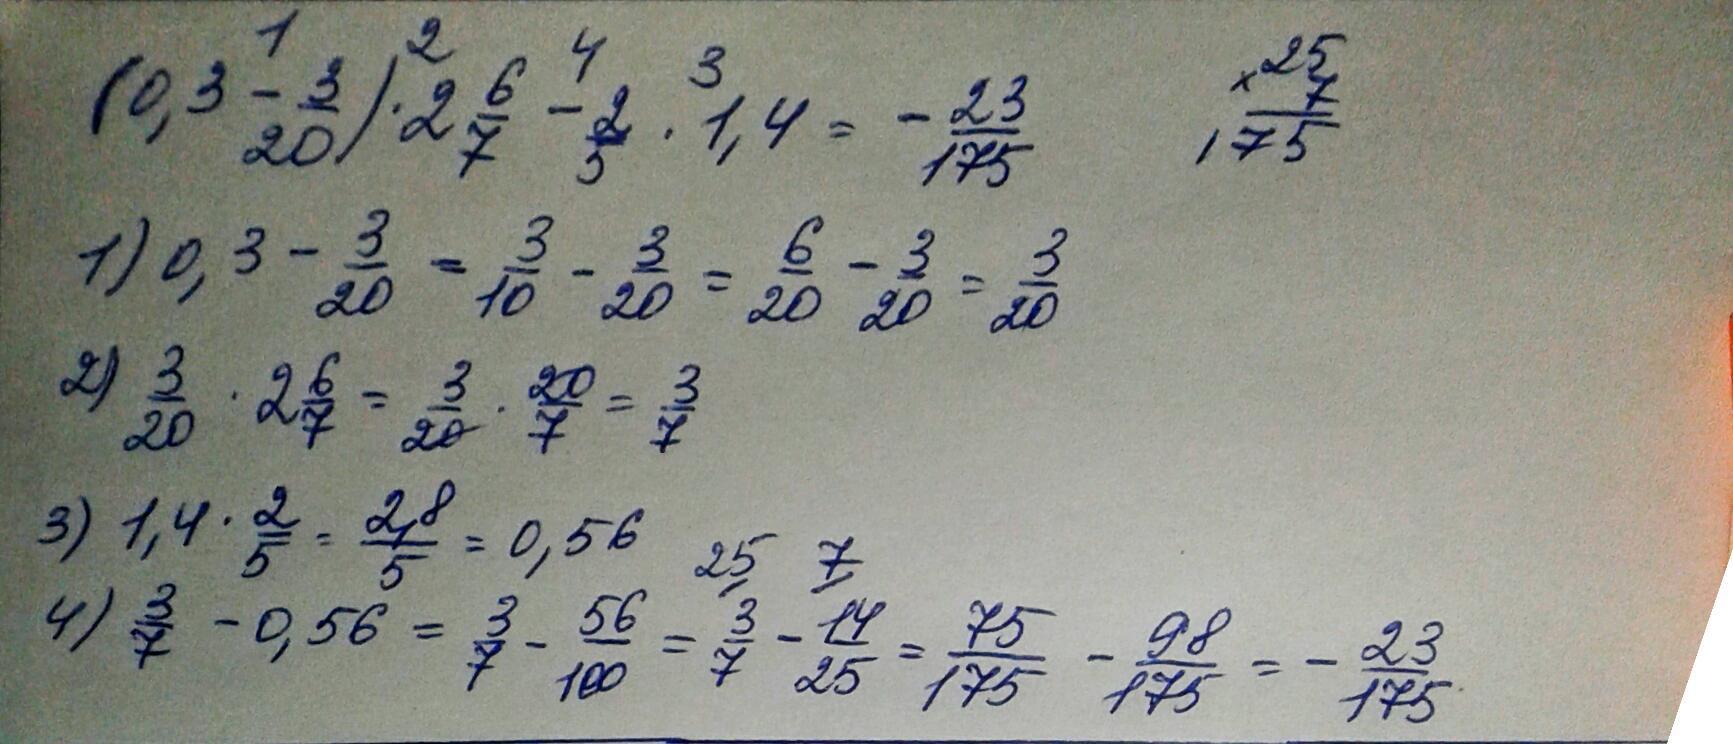 (0,3 - 3/20) · 2 6/7 - 2/5 · 1,4 = - 23/175
1 2 4 3
× 25
7
175
1) 0,3 - 3/20 = 3/10 - 3/20 = 6/20 - 3/20 = 3/20
2) 3/20 · 2 6/7 = 3/20 · 20/7 = 3/7
3) 1,4 · 2/5 = 2,8/5 = 0,56
25 7
4) 3/7 - 0,56 = 3/7 - 56/100 = 3/7 - 14/25 = 75/175 - 98/175 = - 23/175